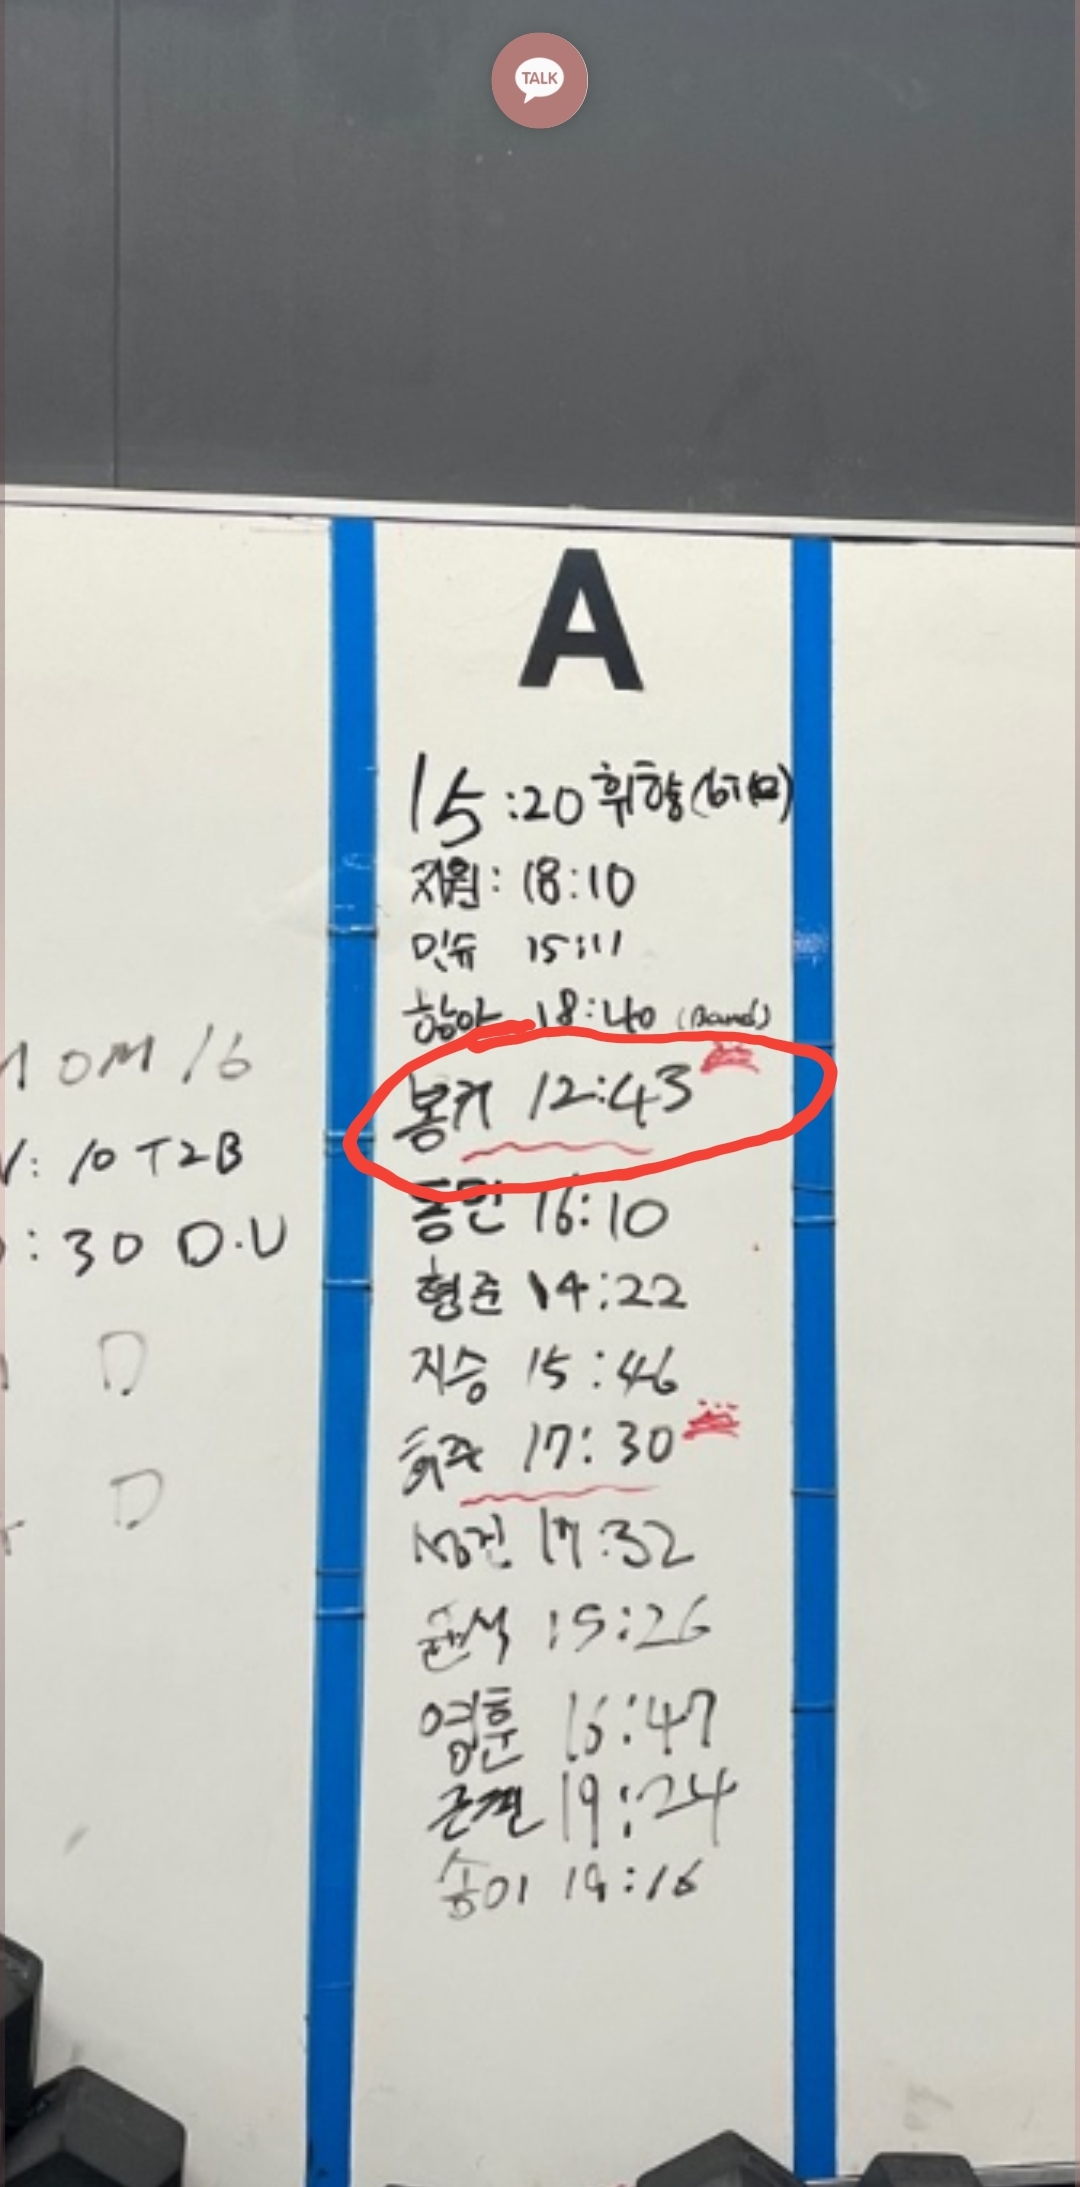 TALK
A
15:20 휘항
지원: 18:10
민슈 15:11
항아 18:40 (Band)
봉커 12:43
동민 16:10
형준 14:22
지승 15:46
희주 17:30
성진 17:32
윤석 15:26
영훈 16:47
근결 19:24
송이 19:16
OM 16
: 10 T2B
: 30 D.U
D
D